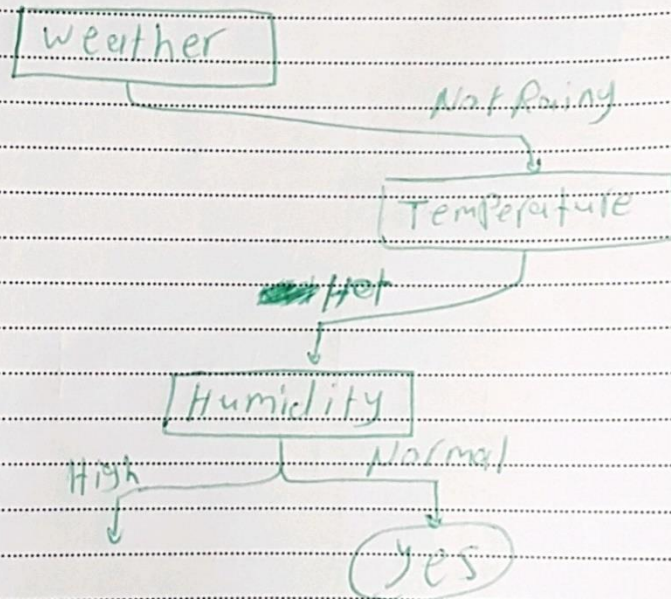 Weather
Not Rainy
Temperature
Hot
Humidity
High Normal
yes